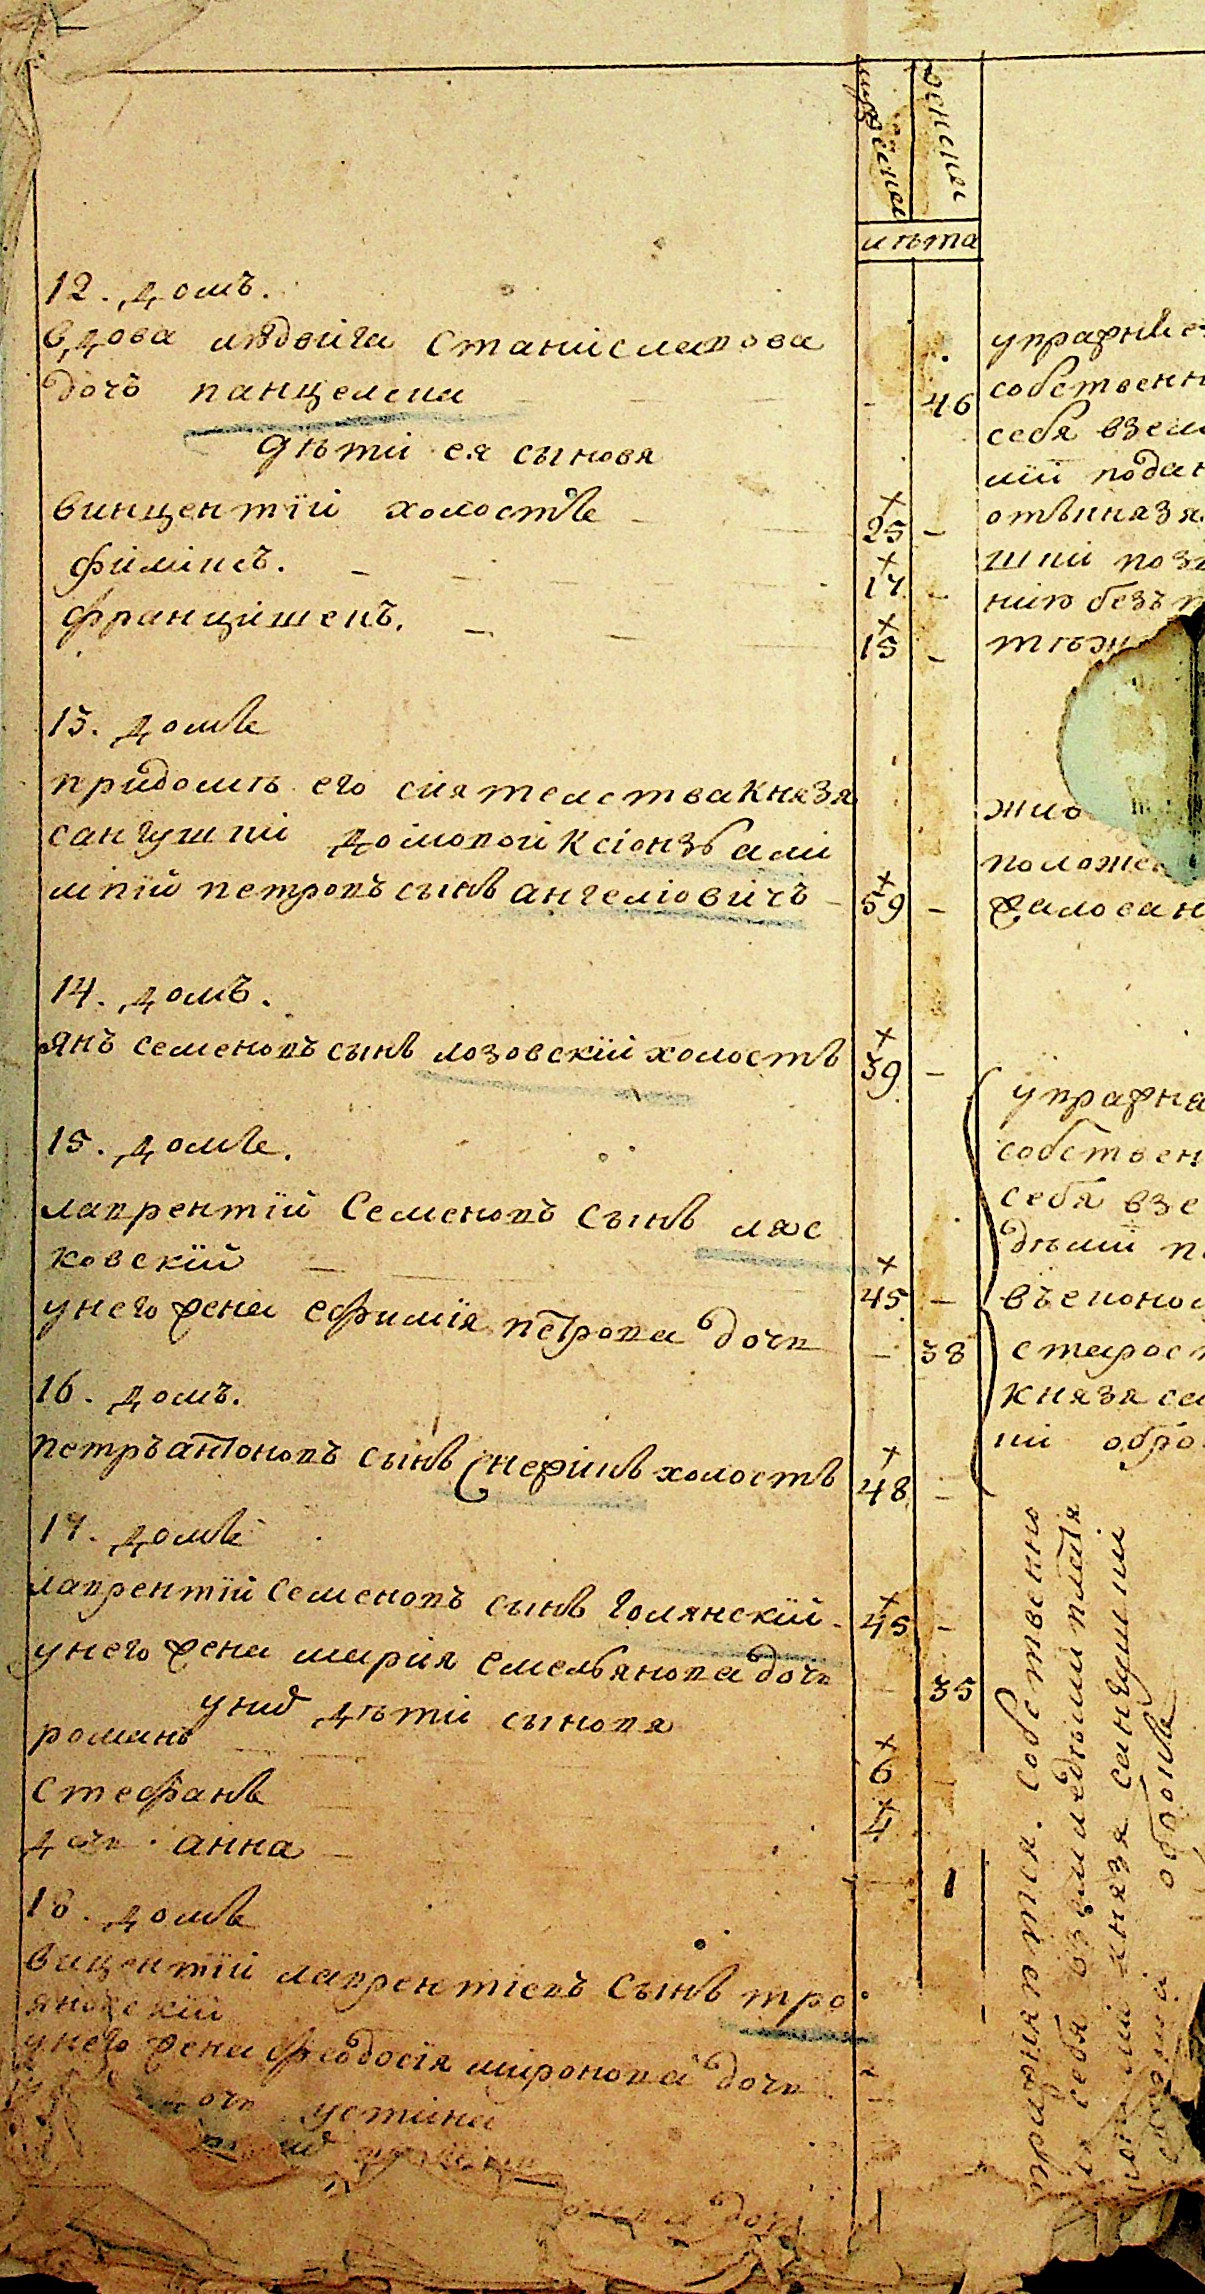 мужеска
женска
лѣта
12. домъ.
вдова людвига Станиславова
дочь панцелена 46
дѣти ея сыновя
винцентїй холостъ 25
филипъ. 17
францишекъ. 15
13. домъ
придомѣ его сиятелства Князя
сангушки домовой Ксіонзъ
петровъ сынъ ангеліовичъ 59
14. домъ.
янъ семеновъ сынъ лозовскїй холостъ 39
15. домъ.
лаврентїй Семеновъ сынъ ляс
ковскїй 45
унего жена ефимїя петрова дочь 38
16. домъ.
петръ антоновъ сынъ холостъ 48
17. домъ
лаврентїй Семеновъ сынъ голянскїй 45
унего жена мария емельянова дочь 35
униⷯ дѣти сыновя
романъ 6
стефанъ 4
дочь анна 1
18. домъ
вицентїй лаврентіевъ Сынъ тро
яновскїй
унего жена феодосія миронова дочь
дочь устина
дочь
упражне
собственн
себя взем
ли подан
отъ князя
шки поз
нию безъ
живо
положе
жало сан
упражня
собствен
себя взе
дѣлии
въ економ
старост
князя са
ки обро
собственно
для себя вземледѣлии платя
князя сангушки
оброкъ